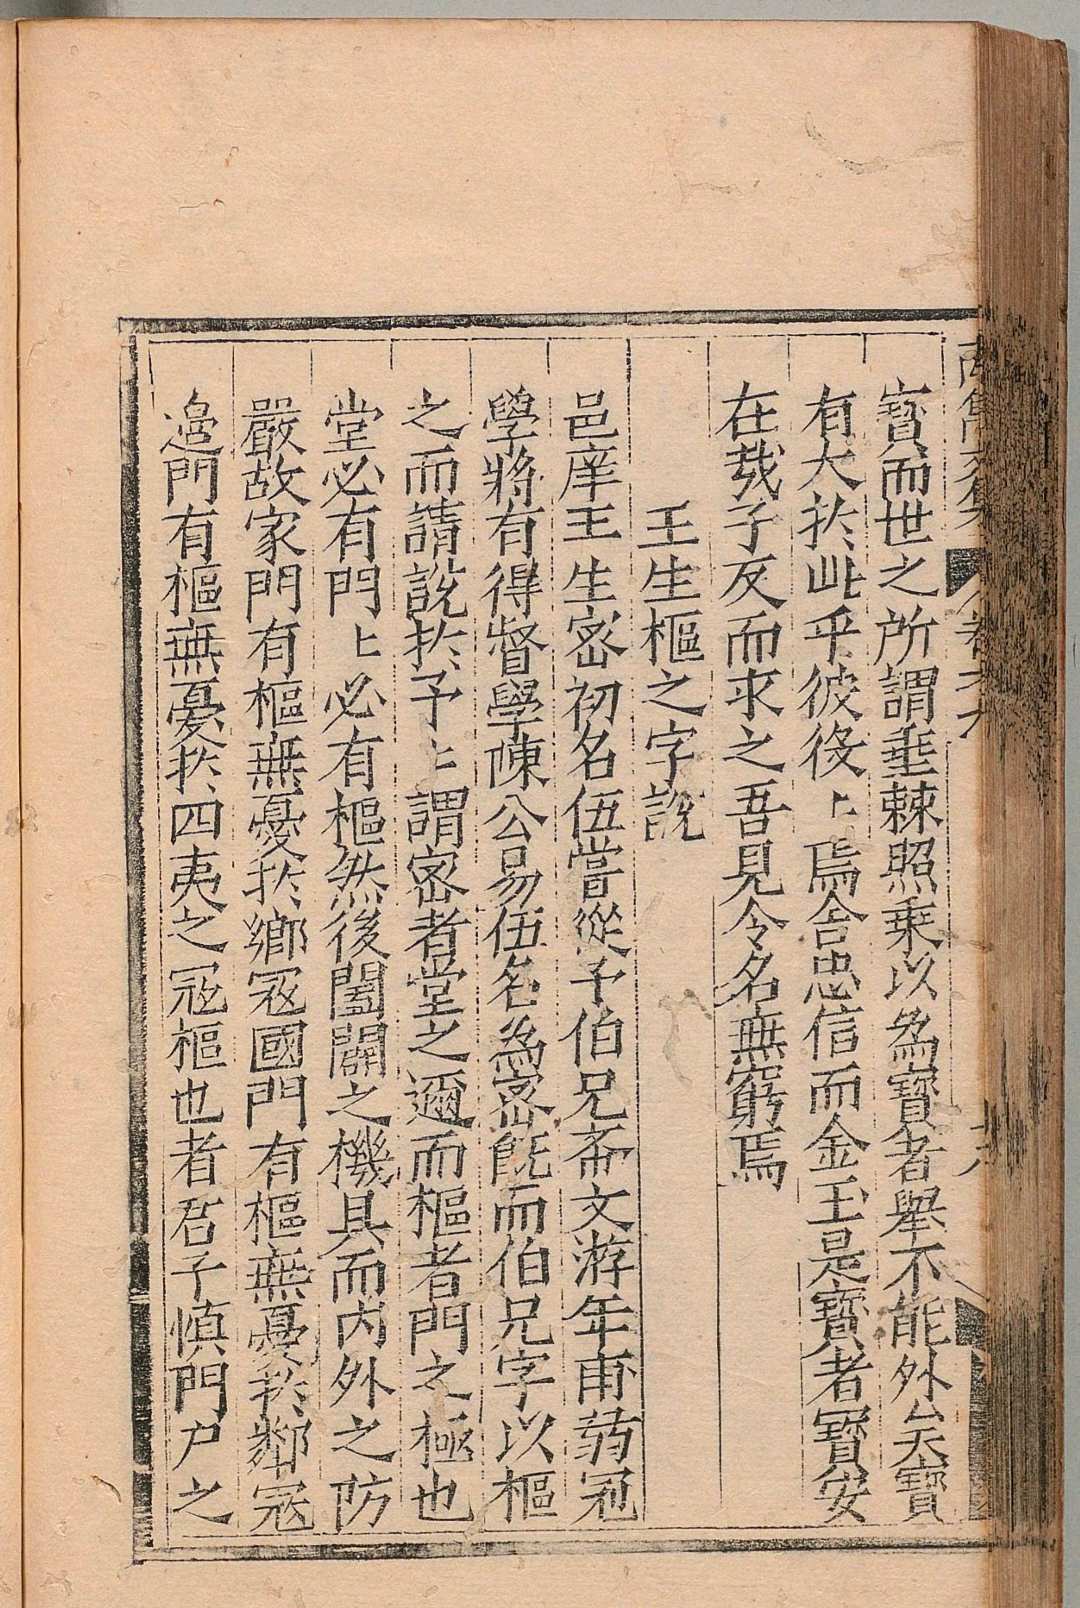 寳而世之所謂垂棘照乗以為寳者舉不能外矣寳
有大扵此乎彼役〻焉舍忠信而金玉是寳者寳安
在哉子反而求之吾見令名無窮焉
王生樞之字說
邑庠王生宻初名伍嘗從予伯兄斋文游年甫弱冠
學將有得督學陳公易伍名為宻旣而伯兄字以樞
之而請說扵予〻謂宻者堂之邇而樞者門之極也
堂必有門〻必有樞然後闔闢之機具而内外之防
嚴故家門有樞無憂扵鄉冦國門有樞無憂扵鄰冦
邉門有樞無憂扵四夷之冦樞也者君子慎門户之